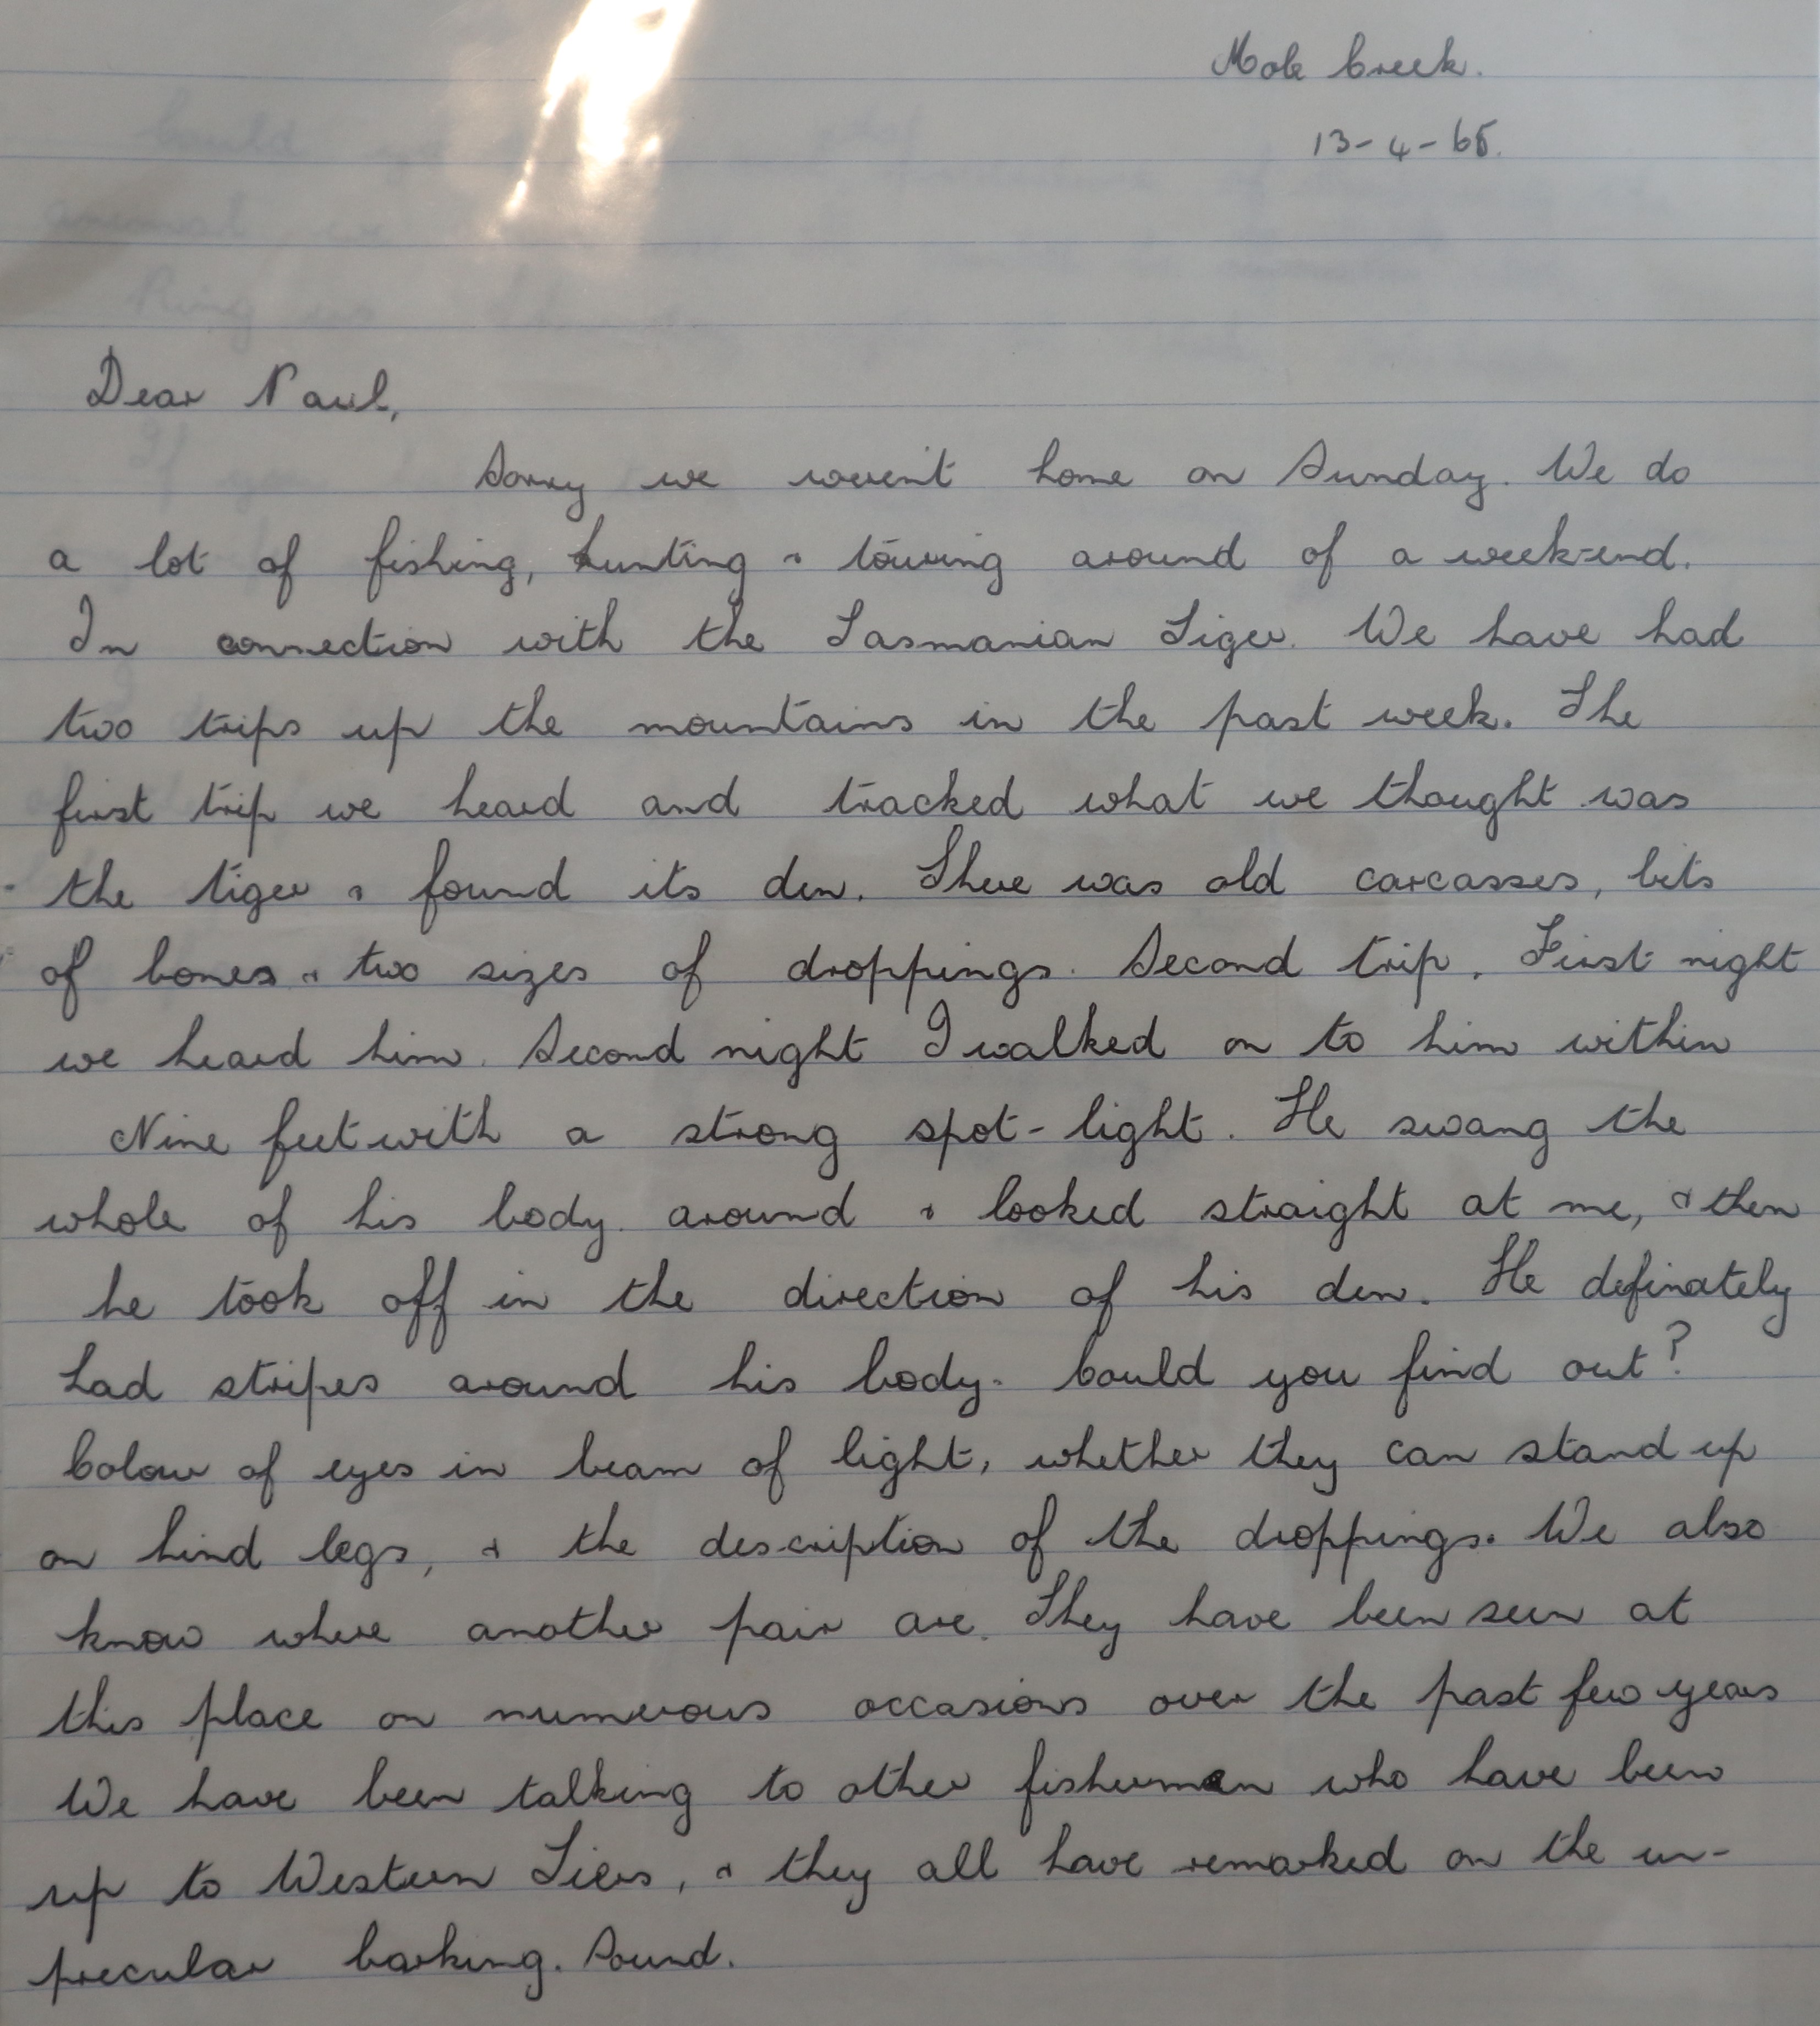 Mole Creek.
13-4-65.
Dear Paul,
Sorry we weren't home on Sunday. We do
a lot of fishing, hunting & touring around of a week-end.
In connection with the Tasmanian Tiger. We have had
two trips up the mountains in the past week. The
first trip we heard and tracked what we thought was
the tiger & found its den. There was old carcasses, bits
of bones & two sizes of droppings. Second trip. First night
we heard him. Second night I walked on to him within
Nine feet with a strong spot-light. He swang the
whole of his body around & looked straight at me, & then
he took off in the direction of his den. He definately
had stripes around his body. Could you find out?
Colour of eyes in beam of light, whether they can stand up
on hind legs, & the description of the droppings. We also
know where another pair are. They have been seen at
this place on numerous occasions over the past few years
We have been talking to other fishermen who have been
up to Western Tiers, & they all have remarked on the un-
precular barking. Sound.